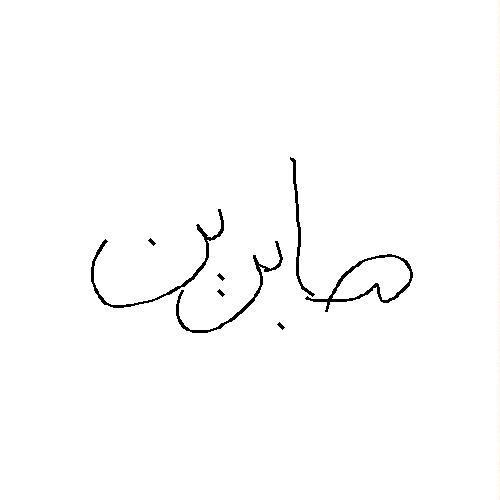 صابرين